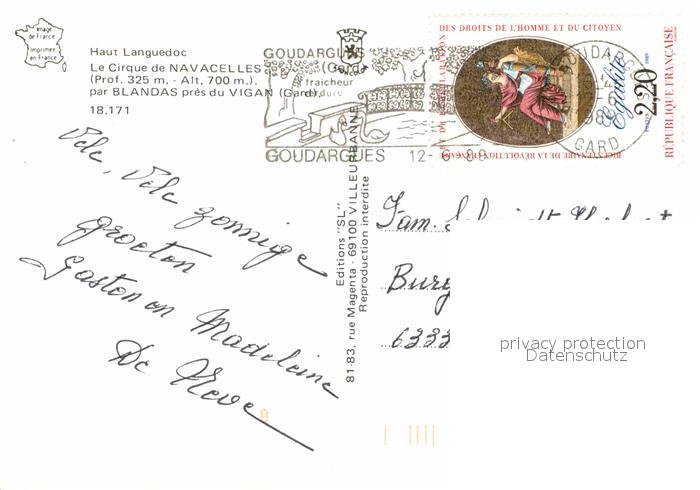 Image
de France
Imprimée
en France
Haut Languedoc
Le Cirque de NAVACELLES
(Prof. 325 m. - Alt, 700 m.)
par BLANDAS près du VIGAN (Gard).
18.171
GOUDARGUES
(Gard)
fraicheur
verdure
GOUDARGUES 12-
GOUDARG
GARD
DES DROITS DE L'HOMME ET DU CITOYEN
BICENTENAIRE DE LA RÉVOLUTION FRANÇAISE ET DE
Egalité
2,20
POSTES 1989
RÉPUBLIQUE FRANÇAISE
Vele, Vele zonnige
groeten
Gaston en Madeleine
De
Editions "SL"
81-83, rue Magenta - 69100 VILLEURBANNE
Reproduction interdite
Fam.
Burg
6333
privacy protection
Datenschutz